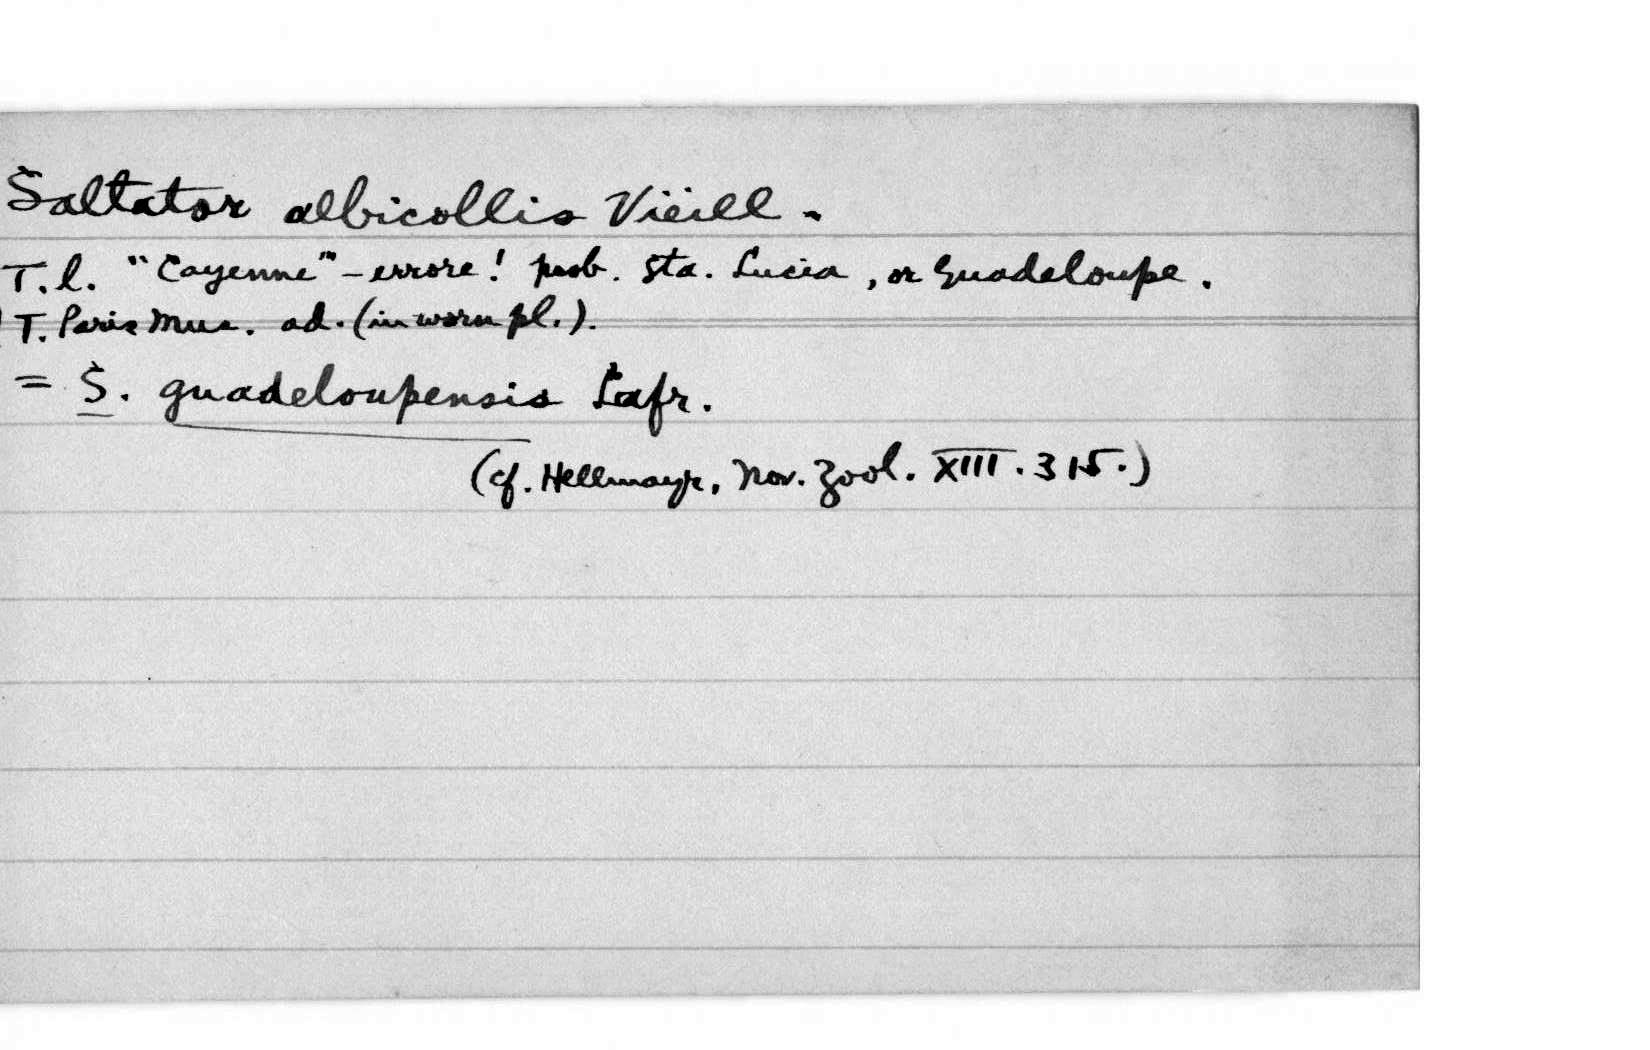 Saltator albicollis Vieill.
T.l. "Cayenne" - errore! prob. Sta. Lucia, or Guadeloupe.
T. Paris Mus. ad. (in worn pl.).
= S. guadeloupensis Lafr.
(cf. Hellmayr, Nov. Zool. XIII. 315.)